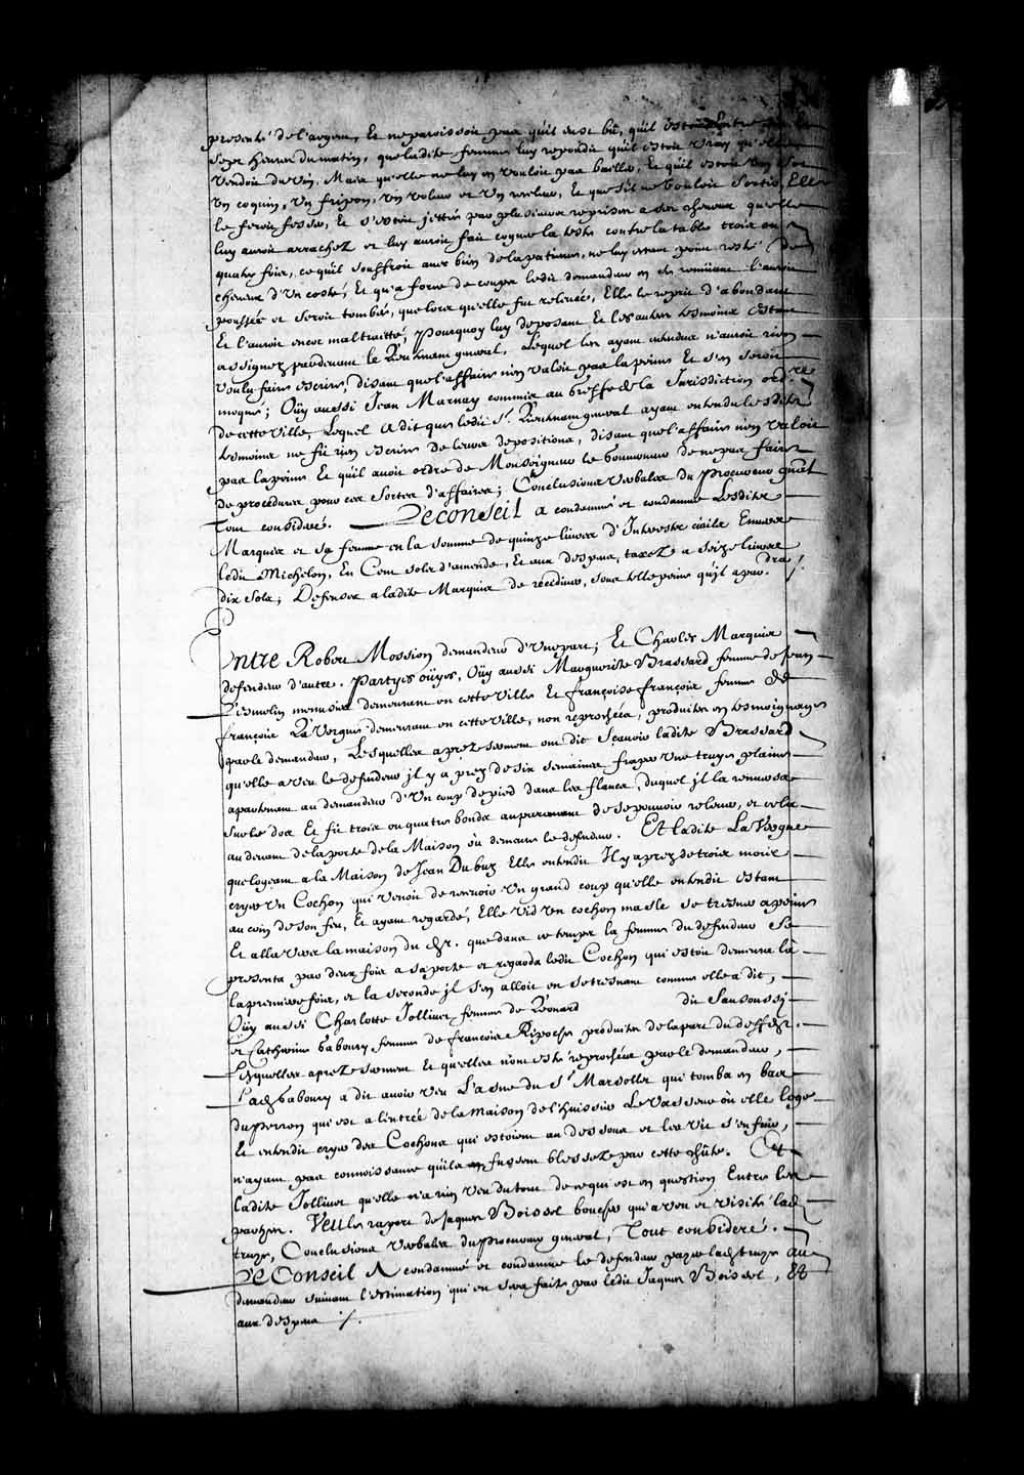 presenté de l'argent, Et ne paroissoit pas quil eust bû, quil estoit
sept heures du matin, que ladite femme luy repondit quil estoit vray qu'elle
vendoit du vin, Mais qu'elle ne luy en vouloit pas bailler, Et quil estoit
Un coquin, Un fripon, Un voleur et Un Et que s'il ne vouloit sortir, Elle
le feroit fesser, Et s'estoit jettée par plusieurs reprises a ses cheveux qu'elle
luy auroit arrachez et luy auroit fait cogner la teste contre la table trois ou
quatre fois, ce quil souffroit avec bien de la patience, ne luy estant point resté de
cheveux d'Un costé, Et qu'a force de coups ledit demandeur en se remüant l'auroit
poussée et seroit tombée, que lors qu'elle fut relevée, Elle le reprit d'abondant
Et l'auroit encor maltraitté, pourquoy luy deposant Et les autres tesmoins estant
assignez pardevant le Lieutenant general, Lequel les ayant entendus n'auroit rien
voulu faire escrire, disant que l'affaire n'en valoit pas la peine Et s'en seroit
moqué; Oüy aussi Jean Marnay commis au Greffe de la Jurisdiction ordre
de cette Ville, Lequel a dit que ledit Sr. Lieutenant general ayant entendu lesdits
tesmoins ne fit rien escrire de leurs depositions, disant que l'affaire n'en valoit
pas la peine Et quil avoit ordre de Monseigneur le Gouverneur de ne pas faire
de procedures pour ces sortes d'affaires; Conclusions verbales du procureur gñal
Tout consideré. Le conseil a condemné et condamne lesdits
Marquis et sa femme en la somme de quinze livres d'Interests civils Envers
ledit Michelon, En Cent sols d'amende, Et aux despens, taxez a seize livres
dix sols; Defenses a ladite Marquis de recidiver, sous telle peine quil apar.dra /.
Entre Robert Mossion demandeur d'Une part; Et Charles Marquis
defendeur d'autre. Partyes oüyes, Oüy aussi Marguerite Brassard femme de Jean
Lesmelin menuisier demeurant en cette Ville Et Françoise François femme de
François La Vergne demeurant en cette Ville, non reprochées, produites en tesmoignages
par le demandeur, Lesquelles aprez serment ont dit Sçavoir ladite Brassard
qu'elle a veu le defendeur jl y a prez de six semaines fraper Une truye pleine
apartenant au demandeur d'Un coup de pied dans les flancs, duquel jl la renversa
sur le dos Et fit trois ou quatre bonds auparavant de se pouvoir relever, et cela
au devant de la porte de la Maison où demeure le defendeur. Et ladite La Vergne
que logeant a la Maison de Jean Dubuq Elle entendit Il y a prez de trois mois
cryer Un Cochon qui venoit de recevoir Un grand coup qu'elle entendit estant
au coin de son feu, Et ayant regardé, Elle vid Un cochon masle se tresner a peine
Et alla vers la maison du dr. que dans ce temps la femme du defendeur se
presenta par deux fois a sa porte et regarda ledit Cochon qui estoit demeuré là
la premiere fois, et la seconde jl s'en alloit en se tresnant comme elle a dit,
Oüy aussi Charlotte Jollivet femme de Léonard dit Sansoussi
et Catherine Gaboury femme de Francois Ripoche produites de la part du deffdr.
Lesquelles aprez serment Et qu'elles n'ont esté reprochées par le demandeur,
Lad. Gaboury a dit avoir veu L'asne du Sr. Marsollet qui tomba en bas
du perron qui est a l'entrée de la maison de l'huissier Levasseur où elle loge
Et entendit cryer des Cochons qui estoient au dessous et les vit s'enfuir,
n'ayant pas connoissance quils fussent blessez par cette chûte. Et
ladite Jollivet qu'elle n'a rien veu du tout de ce qui est en question Entre les
partyes. Veu le raport de Jaques Boissel boucher qui a veu et visité lad.
truye, Conclusions Verbales du procureur general, Tout consideré.
Le Conseil A condamné et condamne le defendeur payer lad. truye au
demandeur suivant l'estimation qui en sera faite par ledit Jaques Boissel, Et
aux despens /.